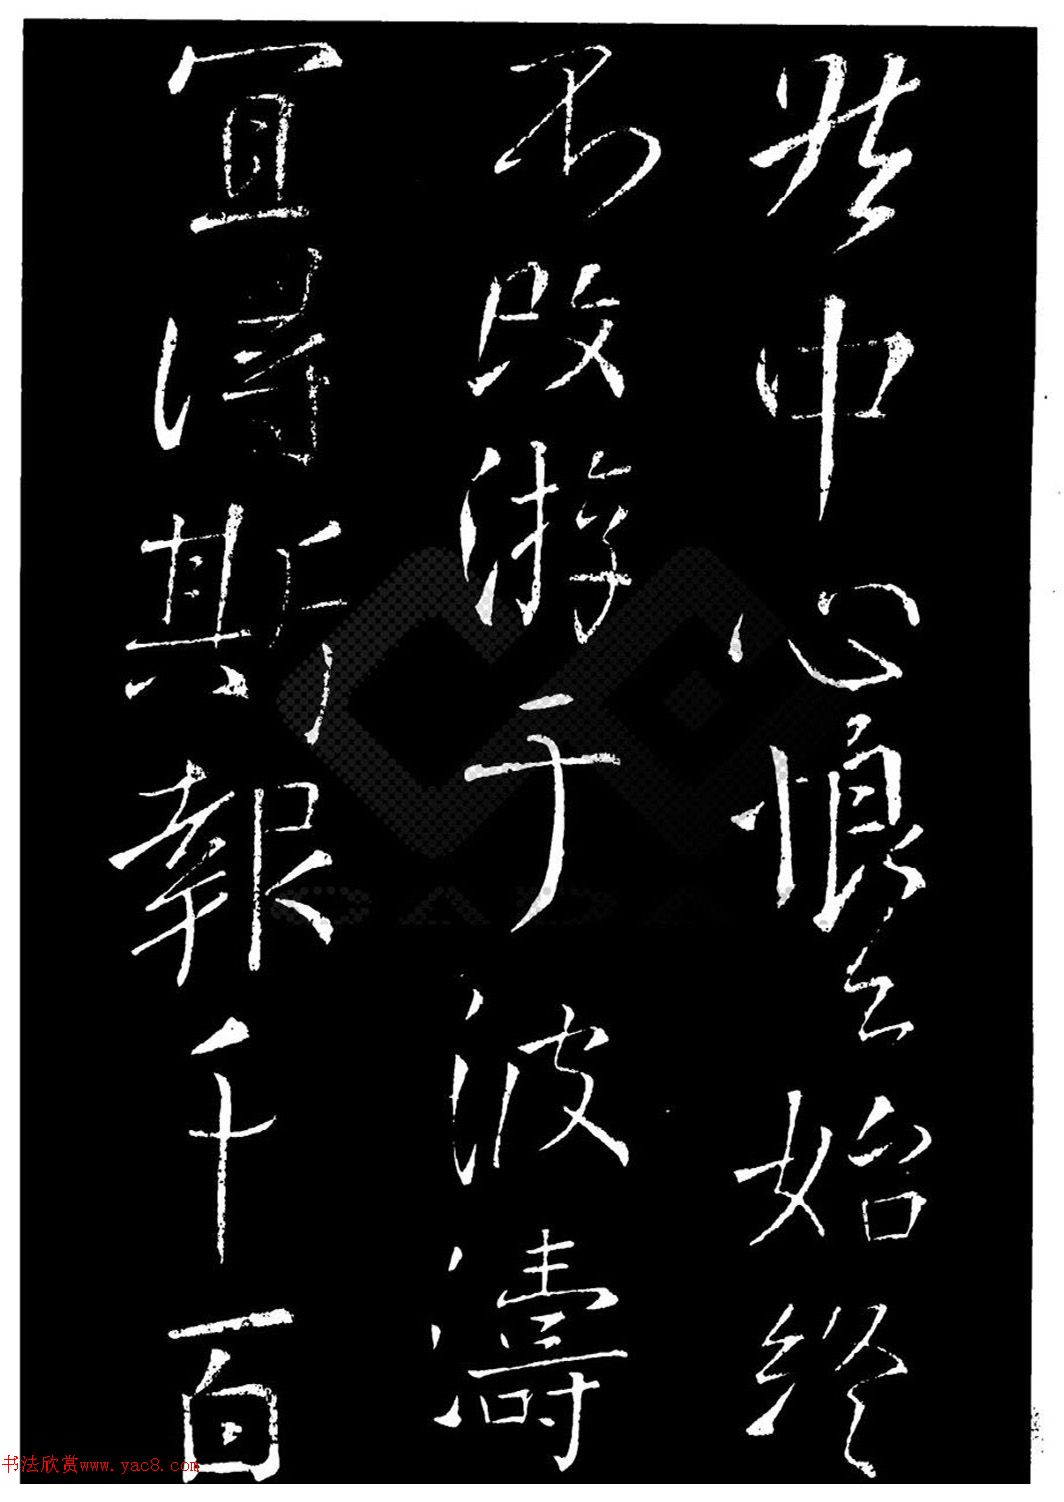 中心恨之始終
不改游于波濤
宜得斯報千百
书法欣赏www.yac8.com